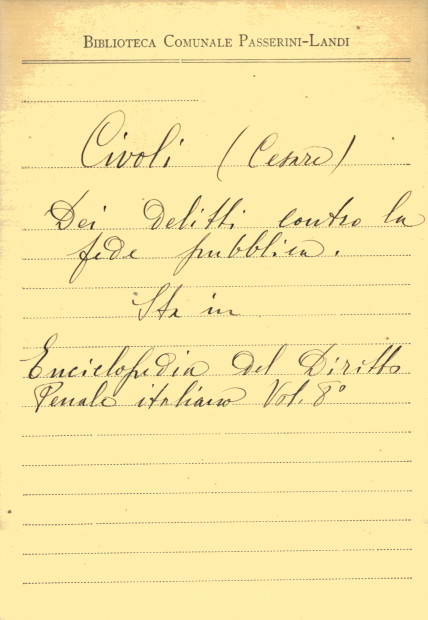 BIBLIOTECA COMUNALE PASSERINI-LANDI
Civoli (Cesare)
Dei delitti contro la
fede pubblica.
Sta in
Enciclopedia del Diritto
Penale italiano Vol. 8°